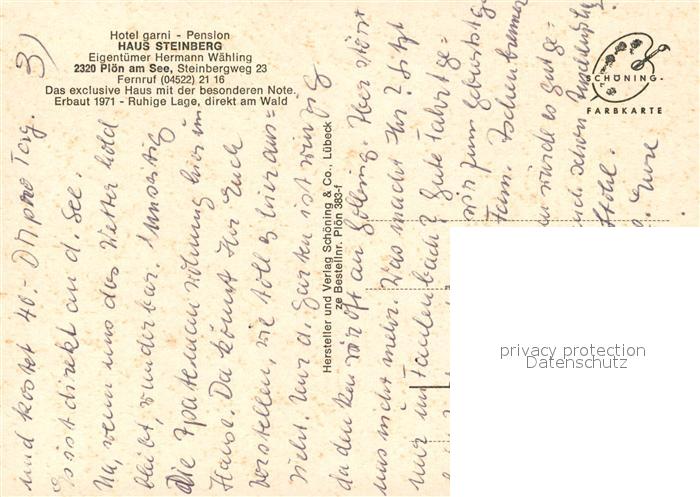 Hotel garni - Pension
HAUS STEINBERG
Eigentümer Hermann Wähling
2320 Plön am See, Steinbergweg 23
Fernruf (04522) 21 16
Das exclusive Haus mit der besonderen Note.
Erbaut 1971 - Ruhige Lage, direkt am Wald
SCHÖNING-
FARBKARTE
Hersteller und Verlag Schöning & Co., Lübeck
ze Bestellnr. Plön 383-f
3)
und kostet 40.- DM pro Tag.
Es ist direkt an d. See.
Na, wenn uns das Wetter hold
bleibt, wunderbar.
Die wohnung hier im
Hause. Da könnt Ihr Euch
vorstellen, wie toll es hier aus=
sieht. Nur d. Garten ist winzig
da denken wir oft an Hier stört
uns nicht mehr. Was macht Ihr? Sitzt
nur in Gute Fahrt ge=
wir zum Geburtstag
Fam.
wurde es gut ge=
schon
Eure
privacy protection
Datenschutz